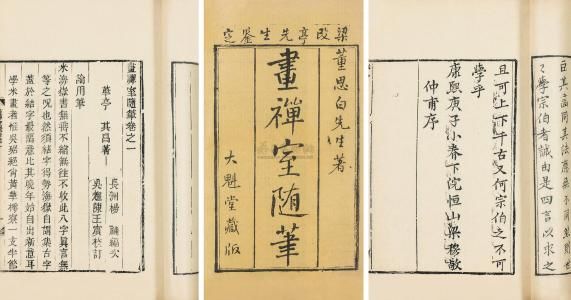 畫禪室隨筆卷之一
長洲楊
華亭 其昌著
論用筆
米海嶽書無垂不縮無往不收此八字真言無
等等之咒也然須結字得勢海嶽自謂集古字
蓋於結字最留意比其晚年始自出新意耳
學米書者惟吳琚絕肖黃華樗寮一支半節
梁改亭先生鑒定
董思白先生著
畫禪室隨筆
大魁堂藏版
學宗伯者誠由是四言以求之
且可上下千古又何宗伯之不可
學乎
康熙庚子小春下浣恒山梁穆敬
仲甫序